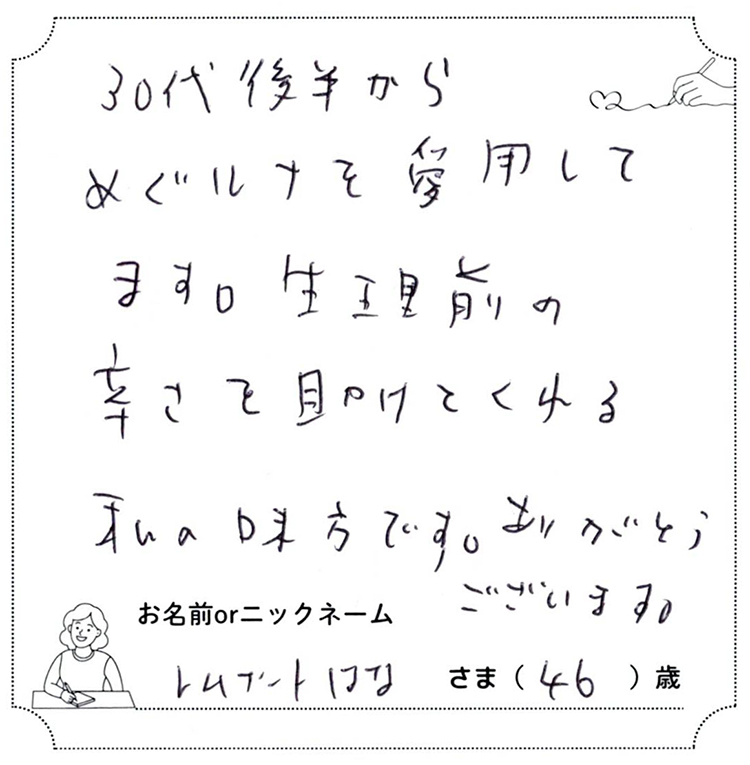 30代後半から
めぐルナを愛用して
ます。生理前の
辛さを助けてくれる
私の味方です。ありがとう
ございます。
お名前orニックネーム
さま（46）歳